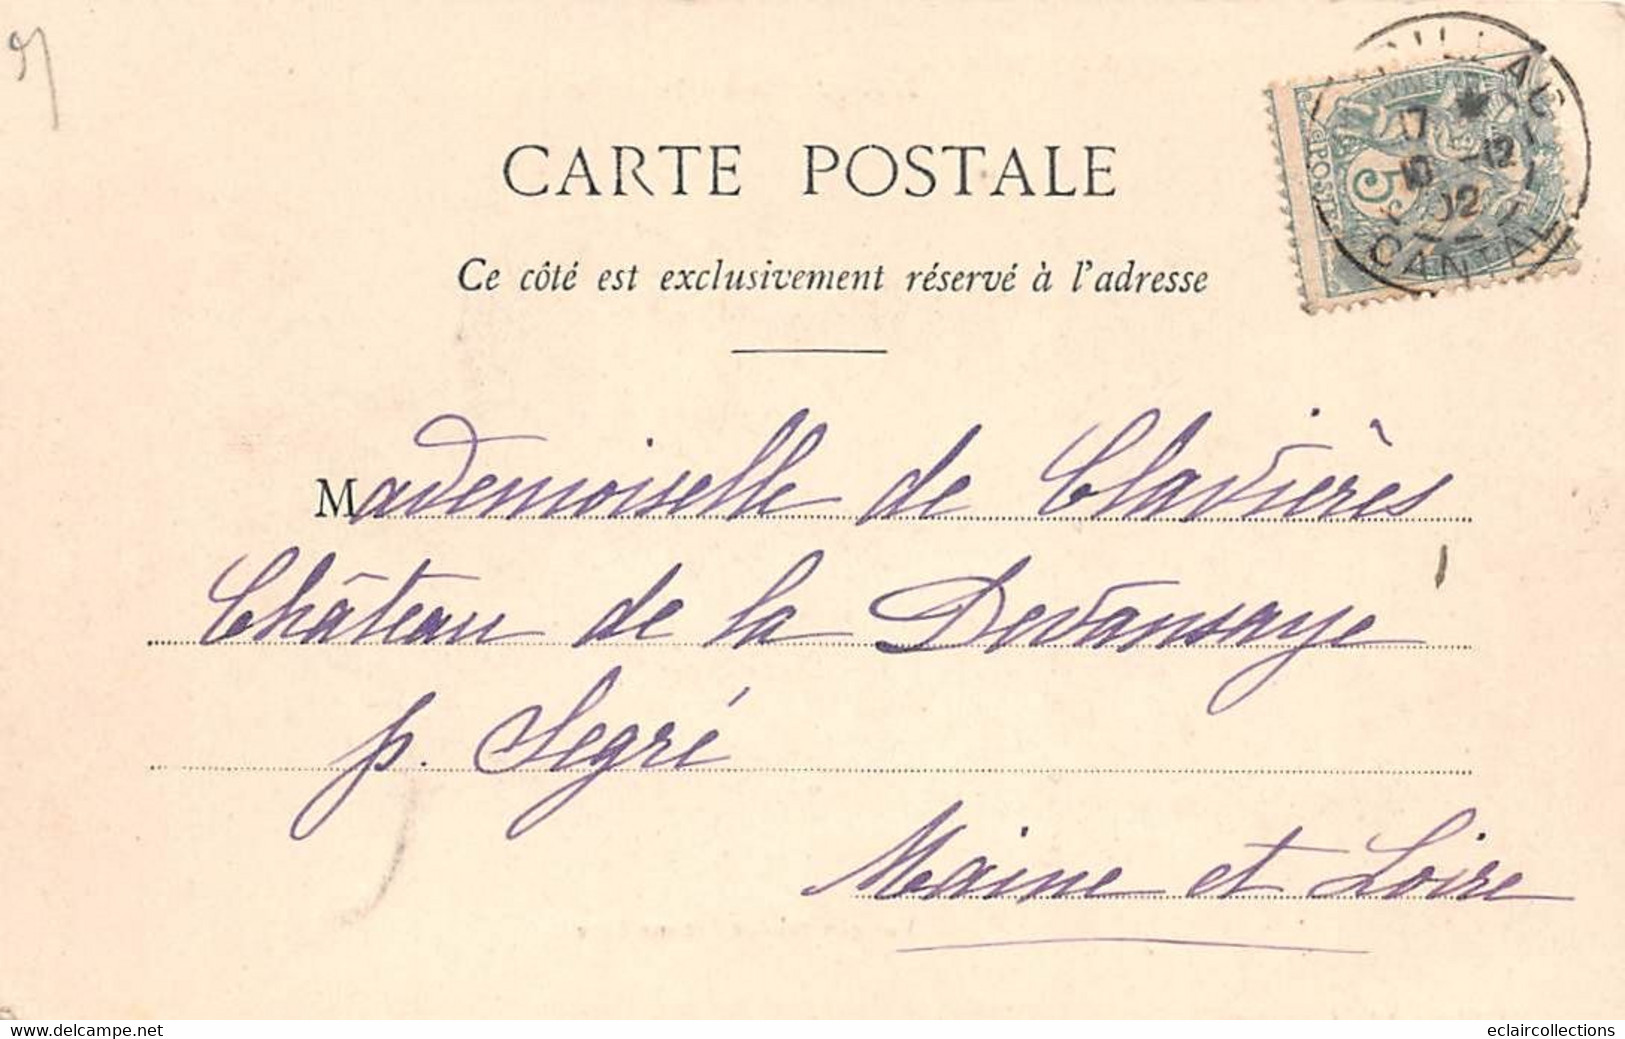 CARTE POSTALE
Ce côté est exclusivement réservé à l'adresse
17
10 -12
02
CANTAL
5
POSTE
Mademoiselle de Clavières
Château de la Devansaye
p. Segré
Maine et Loire
www.delcampe.net
eclaircollections